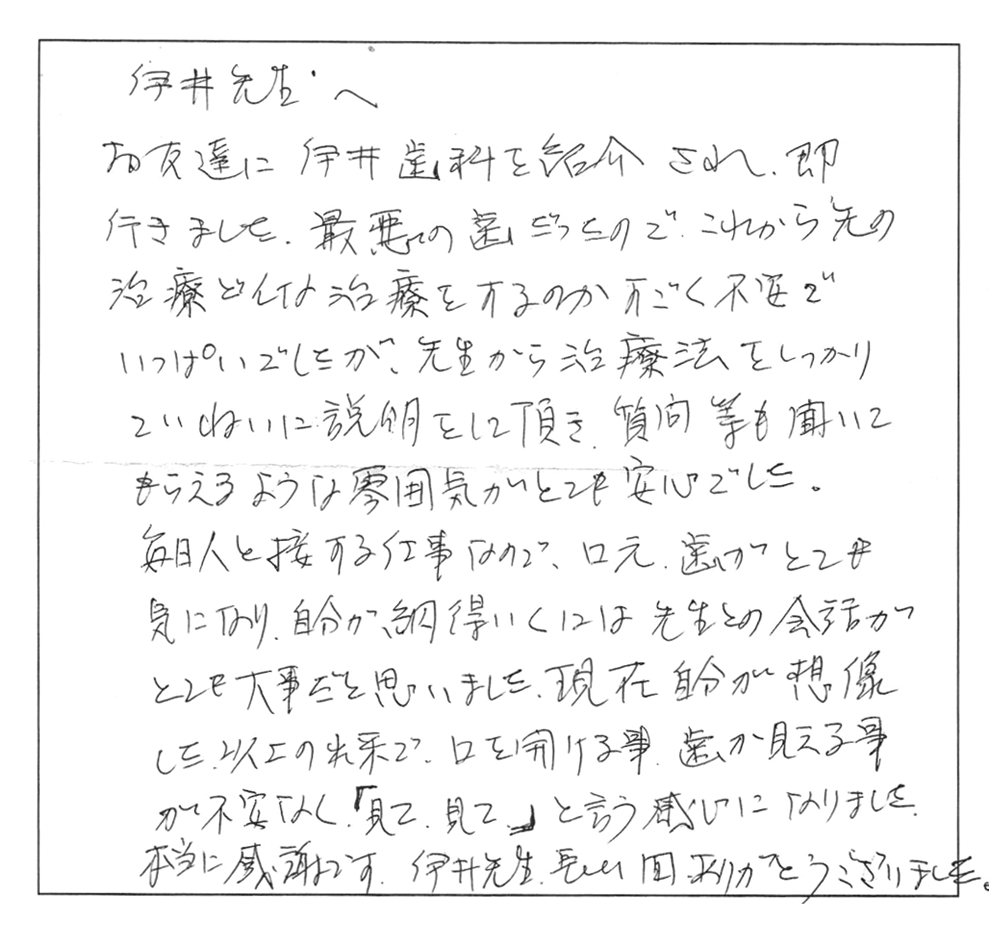 伊井先生へ
お友達に伊井歯科を紹介され、即
行きました。最悪の歯だったので、これから先の
治療どんな治療をするのかすごく不安で
いっぱいでしたが、先生から治療法をしっかり
ていねいに説明をして頂き、質問等も聞いて
もらえるような雰囲気がとても安心でした。
毎日人と接する仕事なので、口元、歯がとても
気になり、自分が納得いくには先生との会話が
とても大事だと思いました。現在自分が想像
した以上の出来で、口を開ける事、歯が見える事
が不安なく、「見て、見て。」と言う感じになりました。
本当に感謝です。伊井先生、長い間ありがとうございました。